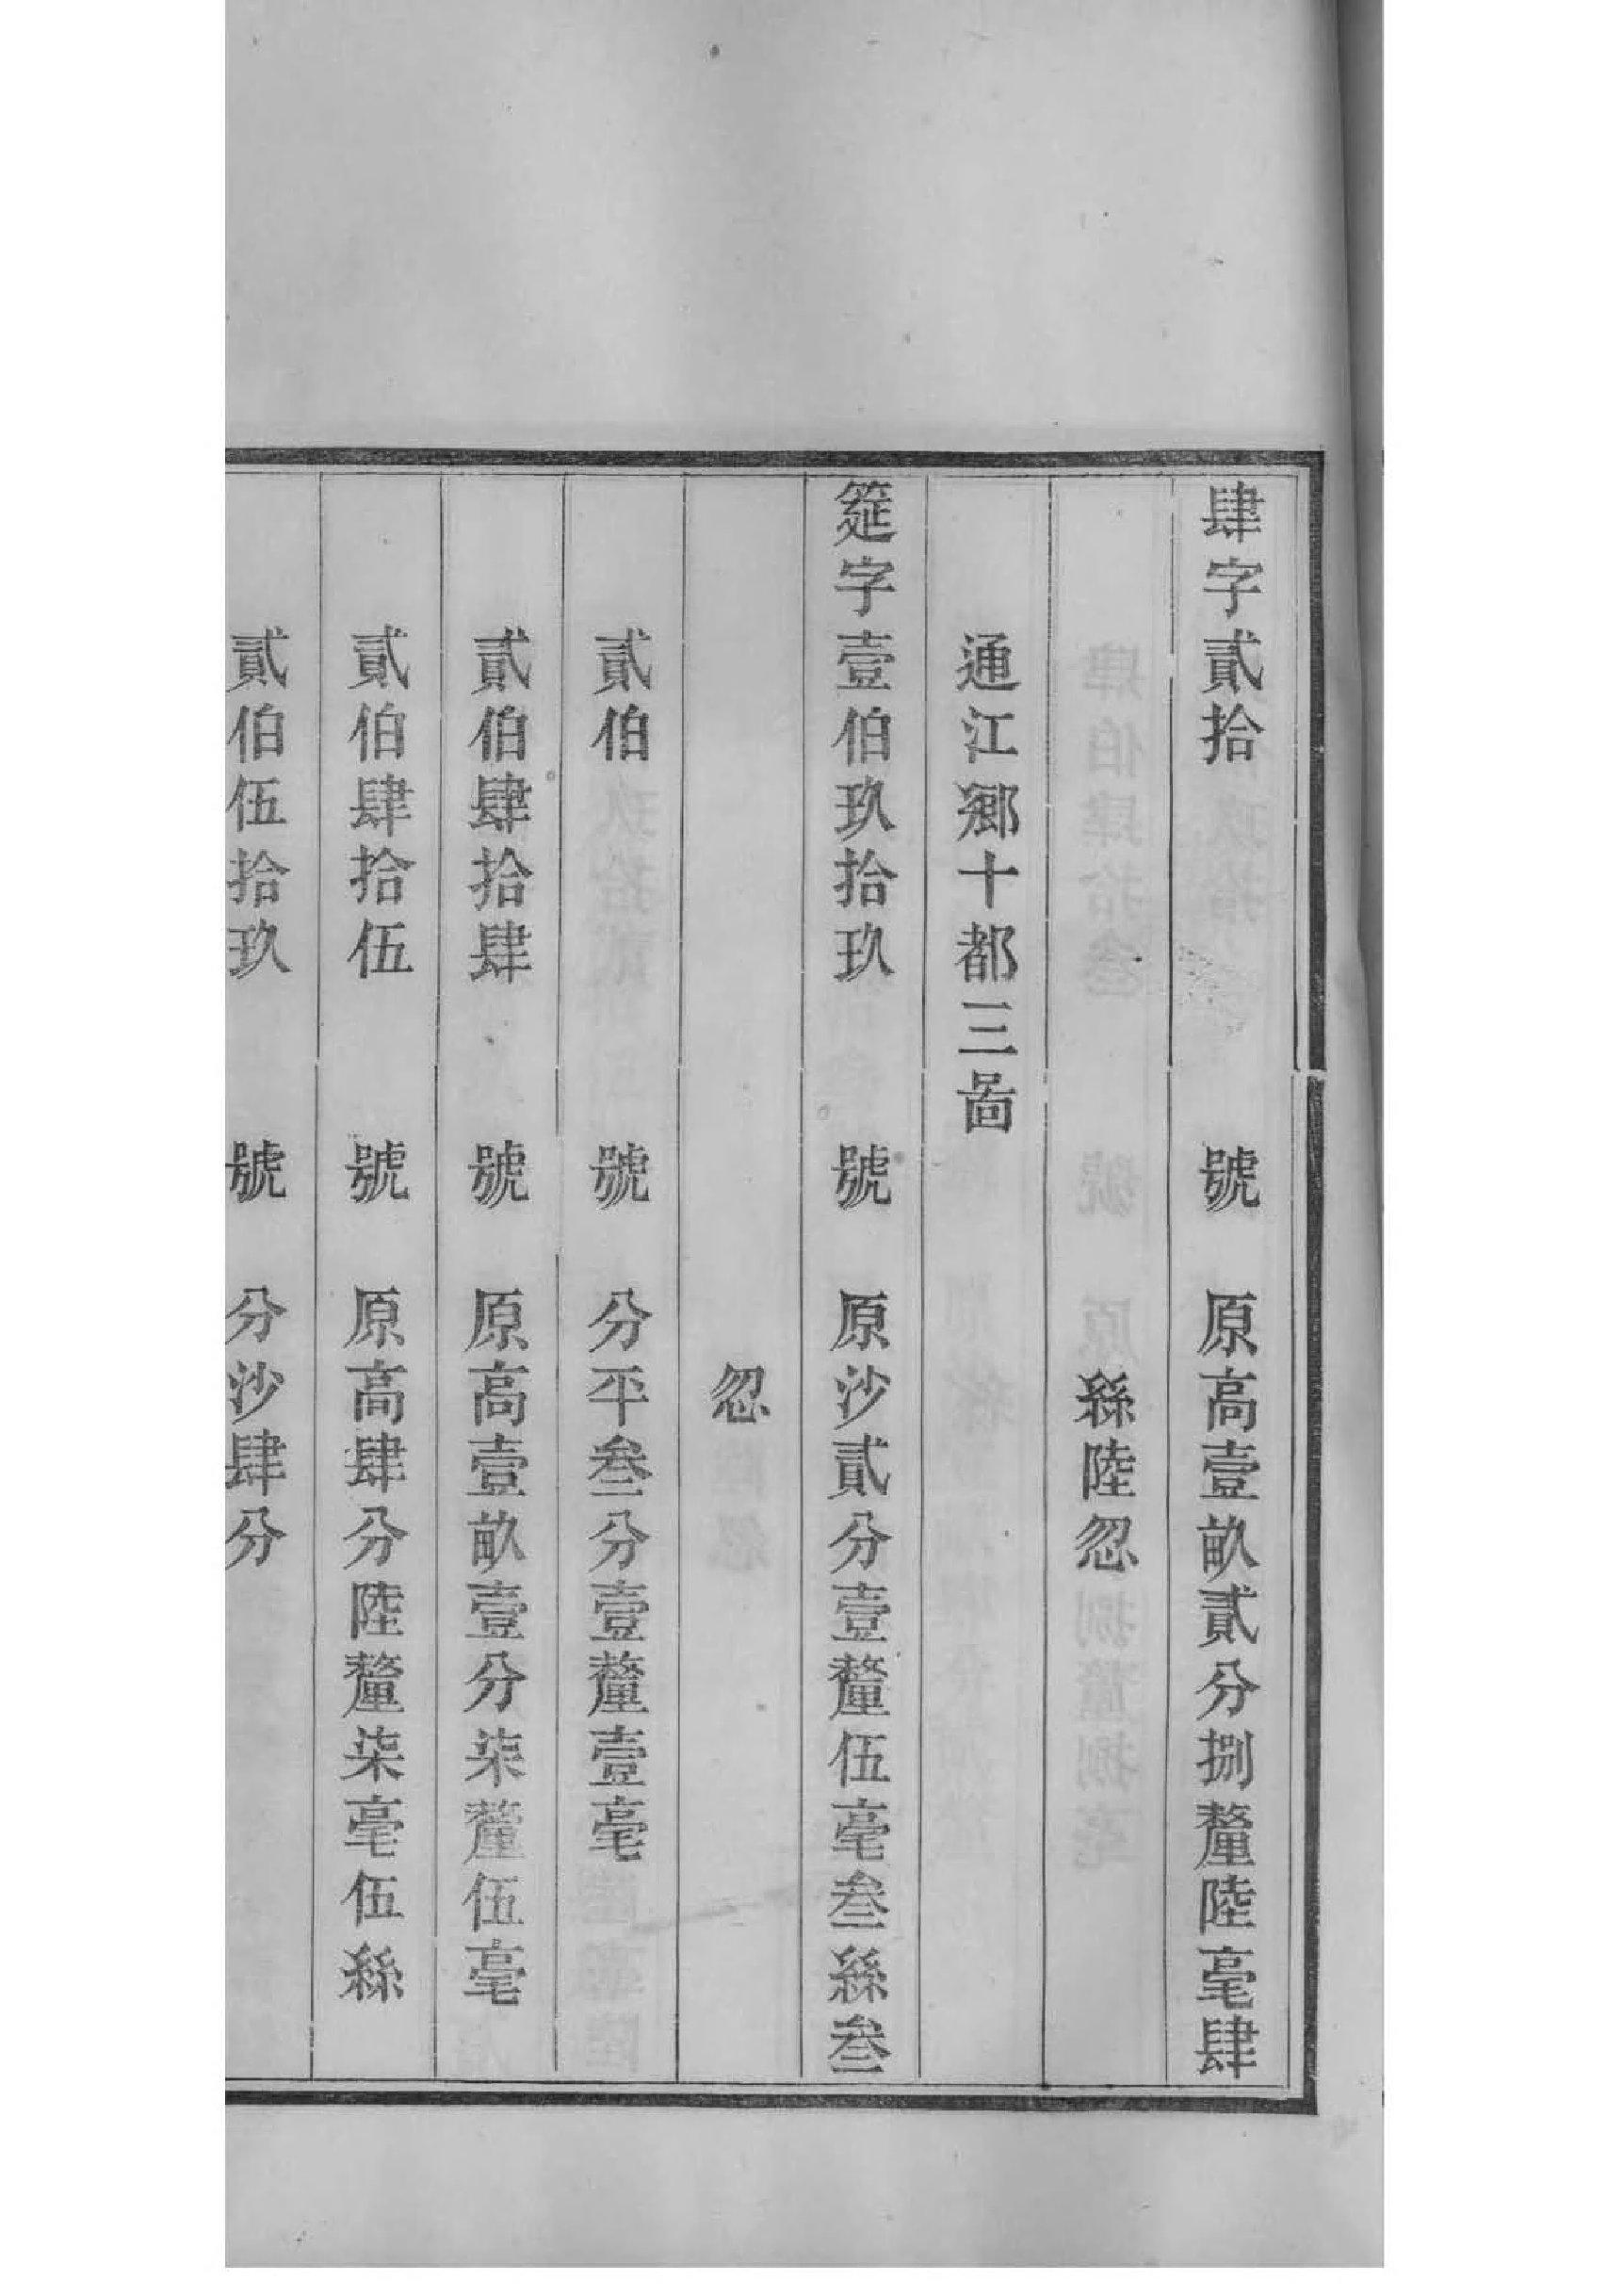 肆字貳拾　號　原高壹畝貳分捌釐陸毫肆
絲陸忽
通江鄉十都三啚
筵字壹伯玖拾玖　號　原沙貳分壹釐伍毫叁絲叁
忽
貳伯　號　分平叁分壹釐壹毫
貳伯肆拾肆　號　原高壹畝壹分柒釐伍毫
貳伯肆拾伍　號　原高肆分陸釐柒毫伍絲
貳伯伍拾玖　號　分沙肆分